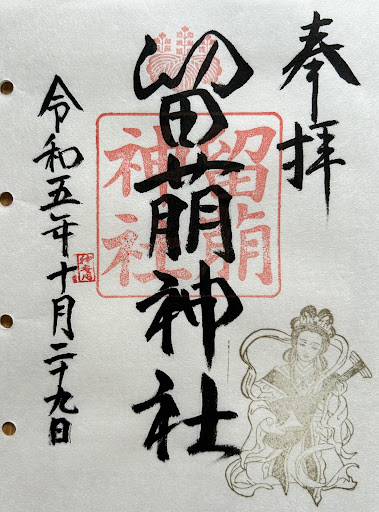 奉拝
留萠神社
留萠神社
令和五年十月二十九日